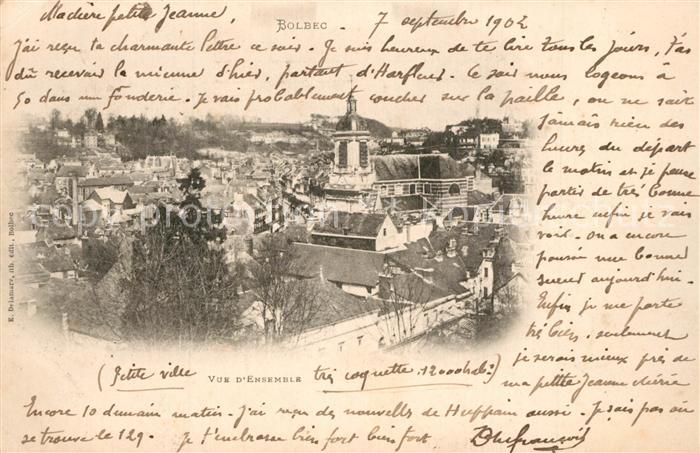 Ma chère petite Jeanne,
BOLBEC. 7 septembre 1902
J'ai reçu ta charmante lettre ce soir. Je suis heureux de te lire tous les jours, t'as
dû recevoir la mienne d'hier, partant d'Harfleur. Ce soir nous logeons à
50 dans une fonderie. Je vais probablement coucher sur la paille, on ne sait
jamais rien des
heures du départ
le matin et je pense
partir de très bonne
heure enfin je vais
voir. On a encore
une bonne
sueur aujourd'hui.
Enfin je me porte
très bien, seulement
je serais mieux près de
ma petite Jeanne chérie
K. Delamare, lib. édit., Bolbec
(Petite ville
VUE D'ENSEMBLE
très coquette : 12000 hab.)
Encore 10 demain matin. J'ai reçu des nouvelles de aussi. Je sais pas où
se trouve le 129. Je t'embrasse bien fort bien fort